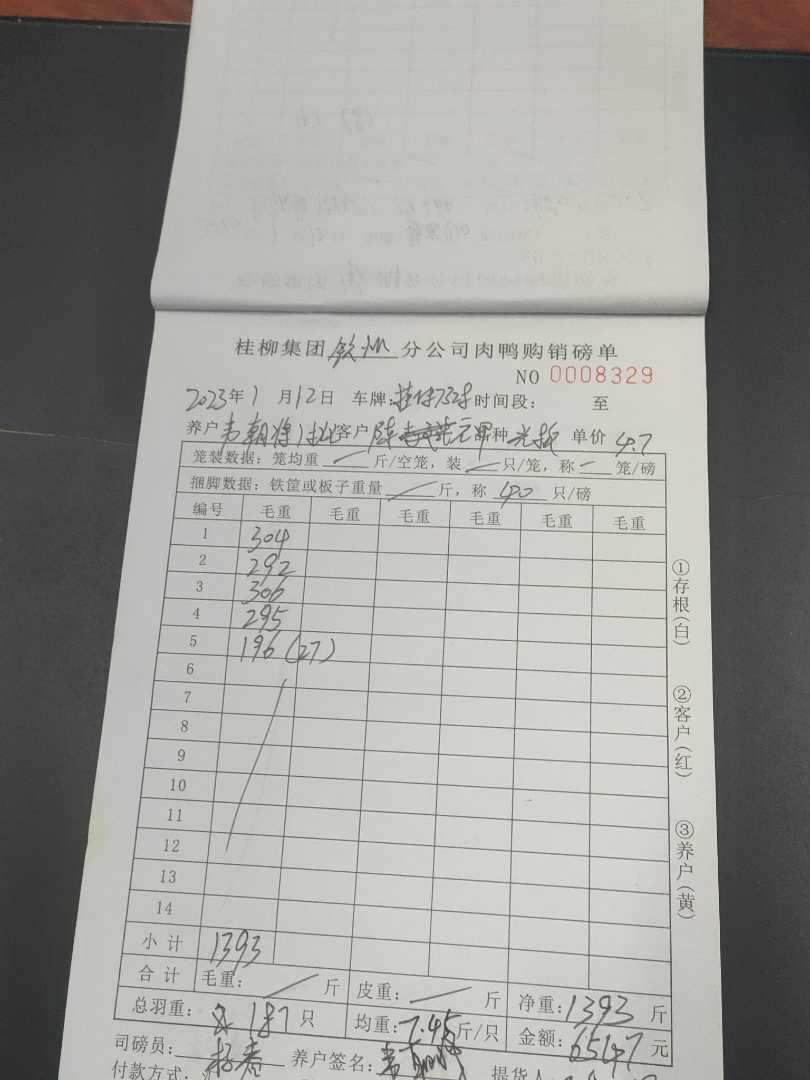 桂柳集团钦州分公司肉鸭购销磅单
NO 0008329
2023年1月12日 车牌: 时间段: 至
养户韦朝 客户陈 种 单价4.7
笼装数据:笼均重 斤/空笼,装 只/笼,称 笼/磅
捆脚数据:铁筐或板子重量 斤,称 40 只/磅
编号 毛重 毛重 毛重 毛重 毛重 毛重
1 304
2 292
3 306
4 295
5 196(27)
6
7
8
9
10
11
12
13
14
小计 1393
合计 毛重: 斤 皮重: 斤 净重:1393斤
总羽重: 187只 均重:7.45斤/只 金额:6547元
司磅员: 养户签名:韦朝
付款方式: 提货人
①存根(白)
②客户(红)
③养户(黄)